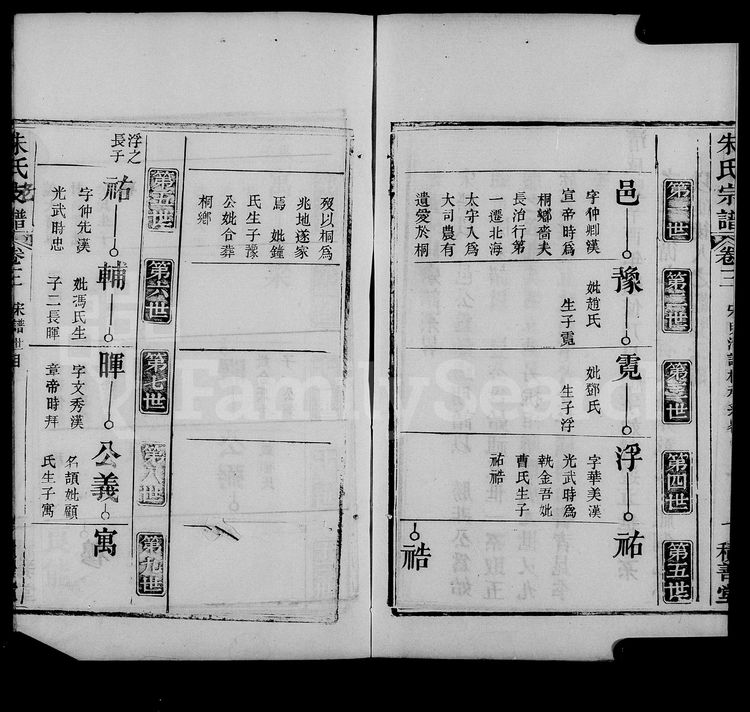 朱氏宗譜
卷二
積善堂
第一世
第二世
第三世
第四世
第五世
邑
豫
霓
浮
祐
祰
字仲卿漢
宣帝時爲
桐鄉嗇夫
長治行第
一遷北海
太守入爲
大司農有
遺愛於桐
妣趙氏
生子霓
妣鄧氏
生子浮
字華美漢
光武時爲
執金吾妣
曹氏生子
祐祰
歿以桐爲
兆地遂家
焉 妣鐘
氏生子豫
公妣合葬
桐鄉
第五世
第六世
第七世
第八世
第九世
浮之
長子
祐
輔
暉
公義
寓
字仲先漢
光武時忠
妣馮氏生
子二長暉
字文秀漢
章帝時拜
名頡妣顧
氏生子寓
朱氏支譜
卷二
FamilySearch